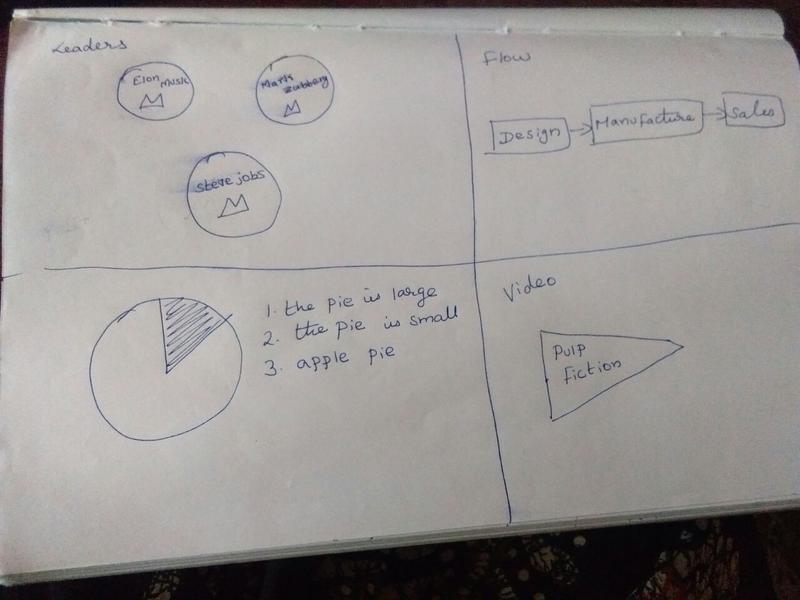 Leaders
Elon
Musk
Mark
Zubberg
steve jobs
Flow
Design
Manufacture
Sales
1. the pie is large
2. the pie is small
3. apple pie
Video
Pulp
Fiction